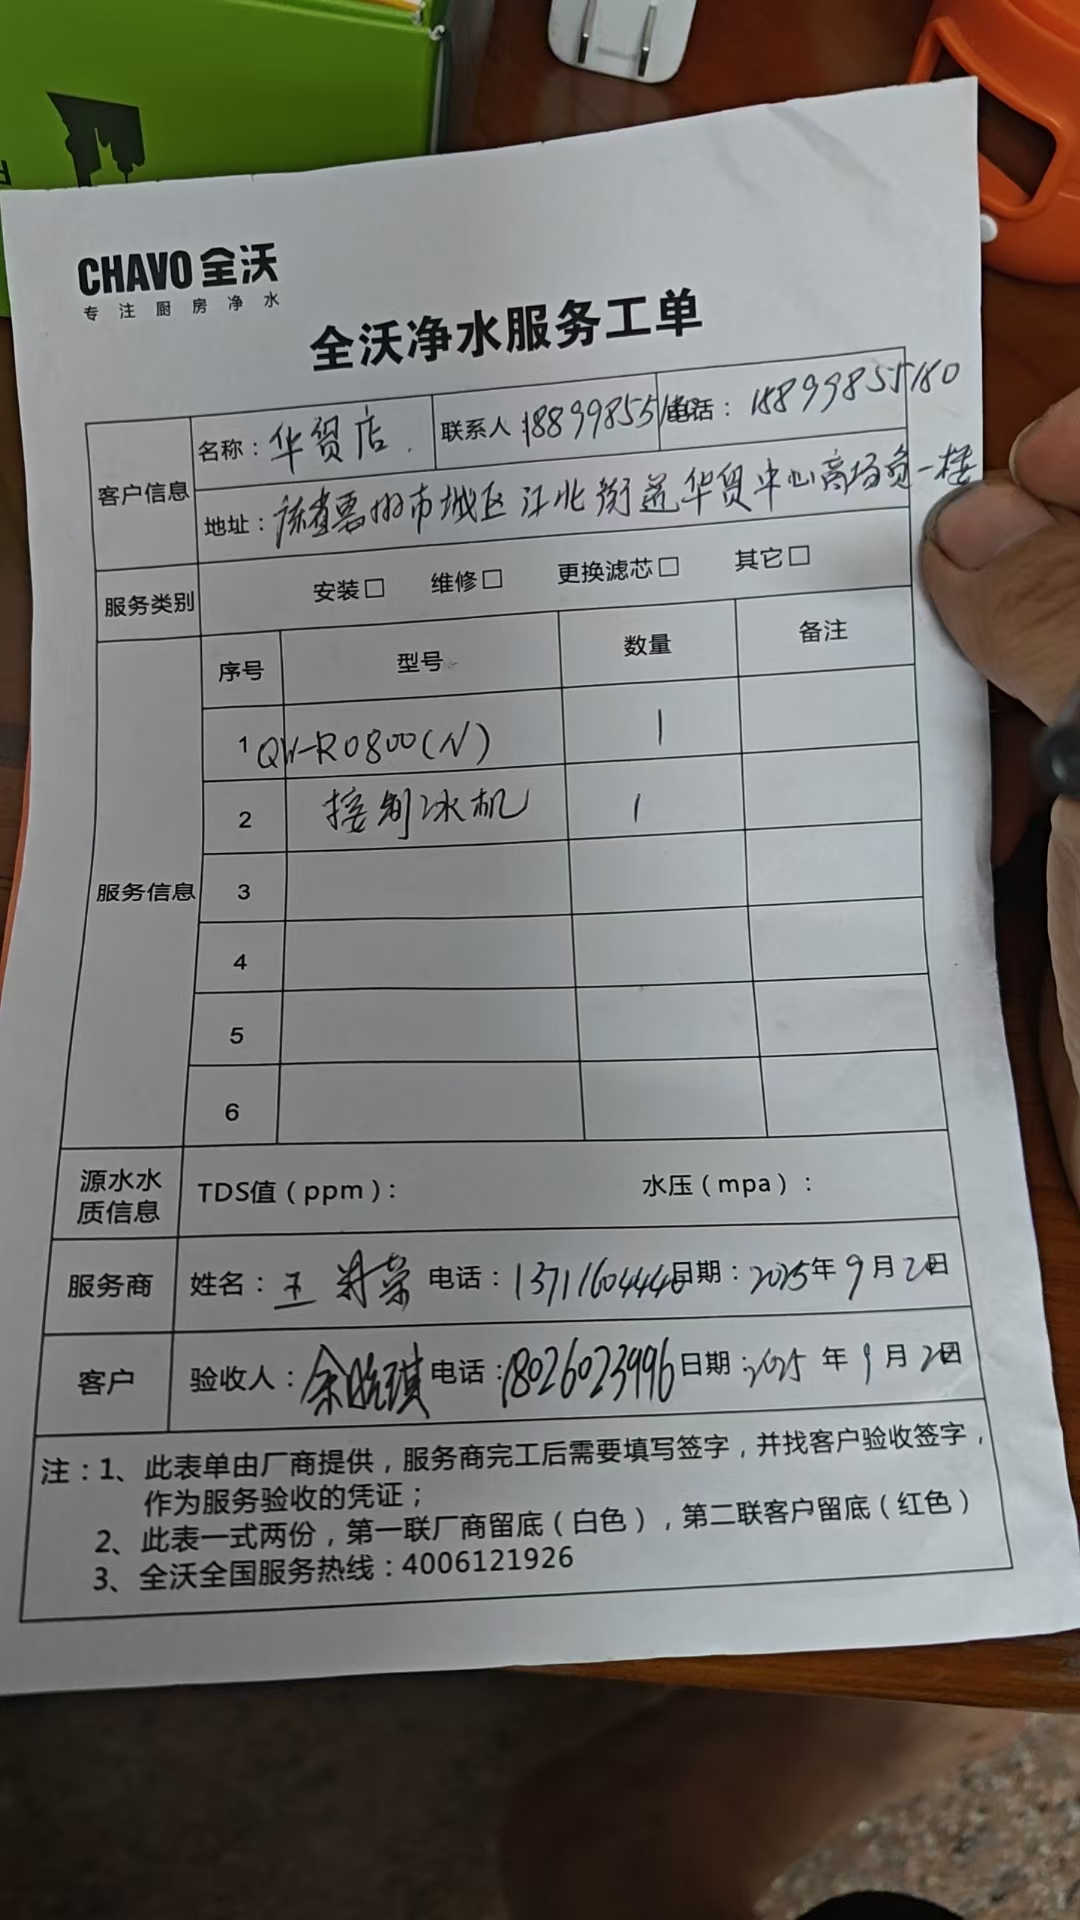 CHAVO 全沃
专注厨房净水
全沃净水服务工单
客户信息
名称：华贸店. 联系人：188998551 电话：18899855180
地址：惠州市城区江北街道华贸中心商场负一楼
服务类别 安装□ 维修□ 更换滤芯□ 其它□
服务信息
序号 型号 数量 备注
1 QW-RO800(N) 1
2 接制冰机 1
3
4
5
6
源水水质信息 TDS值（ppm）： 水压（mpa）：
服务商 姓名：王 荣 电话：13711604446 日期：2025年9月2日
客户 验收人：余 琪 电话：18026023996 日期：2025年9月2日
注：1、此表单由厂商提供，服务商完工后需要填写签字，并找客户验收签字，
作为服务验收的凭证；
2、此表一式两份，第一联厂商留底（白色），第二联客户留底（红色）
3、全沃全国服务热线：4006121926